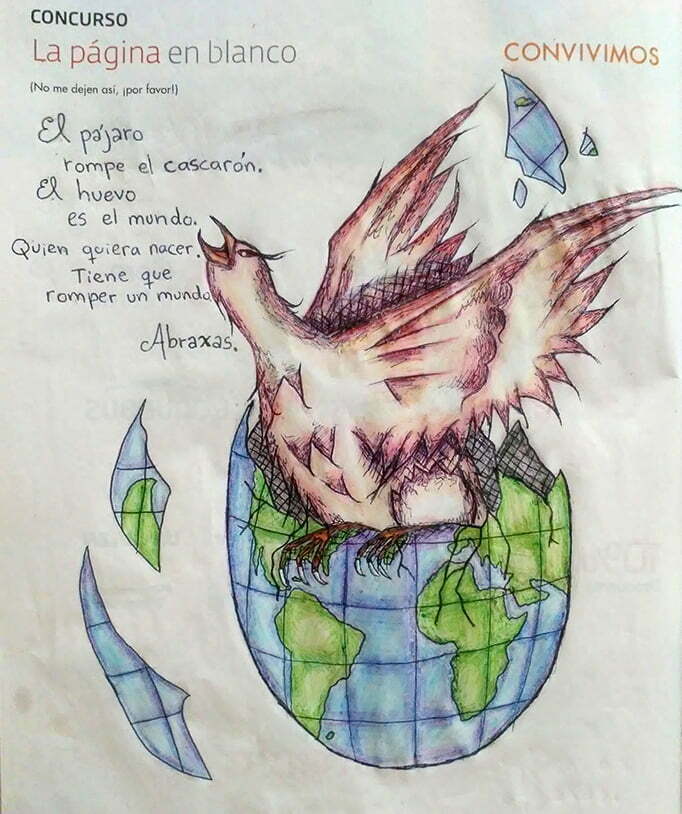 CONCURSO
La página en blanco
CONVIVIMOS
(No me dejen así, ¡por favor!)
El pájaro
rompe el cascarón.
El huevo
es el mundo.
Quien quiera nacer.
Tiene que
romper un mundo
Abraxas.